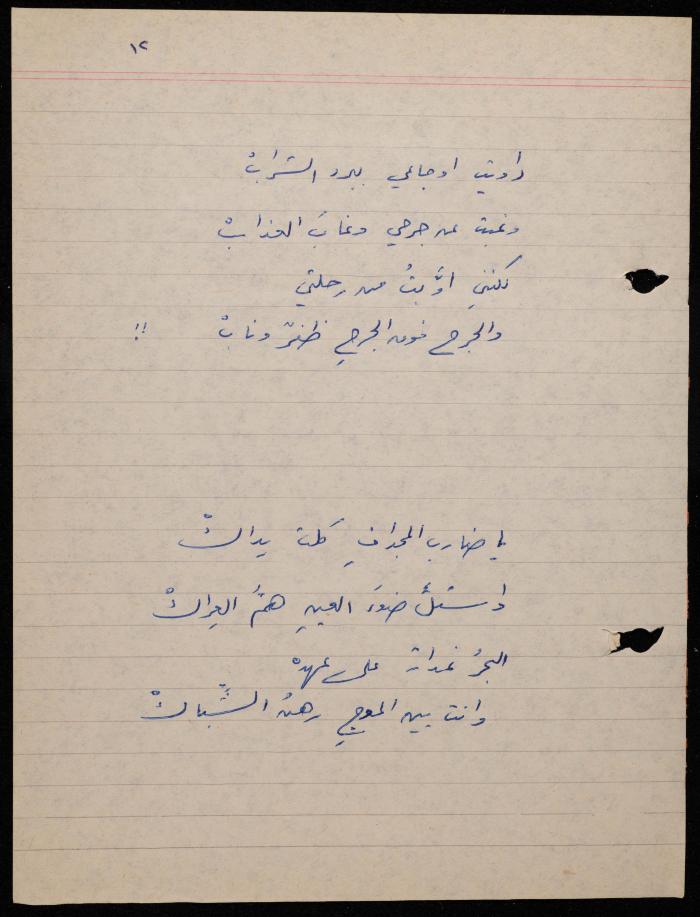 ١٢
داويت اوجاعي ببرد الشرابْ
وغبت عن جرحي وغابَ العذابْ
لكننِي اوَّبتُ من رحلتي
والجرح فوق الجرحِ ظفرٌ ونابْ !!
يا ضارب المجدافِ كلت يداكْ
واستلَّ ضوءَ العينِ همُّ العِراكْ
البحرُ غدارٌ على عهدهْ
وانت بين الموجِ رهنُ الشِّباكْ